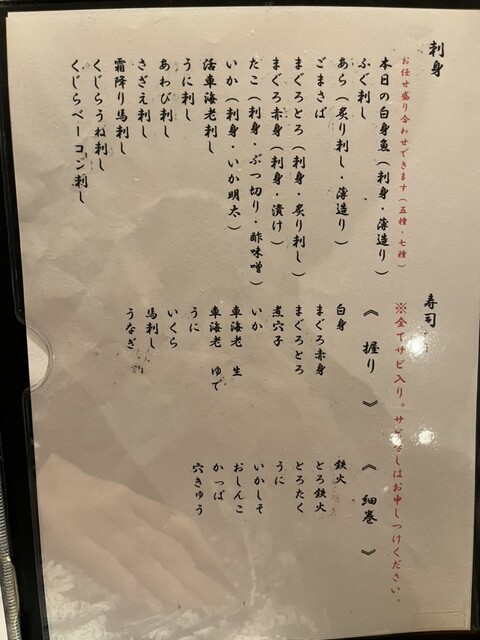 刺身
お任せ盛り合わせできます(五種・七種)
本日の白身魚(刺身・薄造り)
ふぐ刺し
あら(炙り刺し・薄造り)
ごまさば
まぐろとろ(刺身・炙り刺し)
まぐろ赤身(刺身・漬け)
たこ(刺身・ぶつ切り・酢味噌)
いか(刺身・いか明太)
活車海老刺し
うに刺し
あわび刺し
さざえ刺し
霜降り馬刺し
くじらうね刺し
くじらベーコン刺し
寿司
※全てサビ入り。サビなしはお申しつけください。
《 握り 》
白身
まぐろ赤身
まぐろとろ
煮穴子
いか
車海老 生
車海老 ゆで
うに
いくら
馬刺し
うなぎ
《 細巻 》
鉄火
とろ鉄火
とろたく
うに
いかしそ
おしんこ
かっぱ
穴きゅう